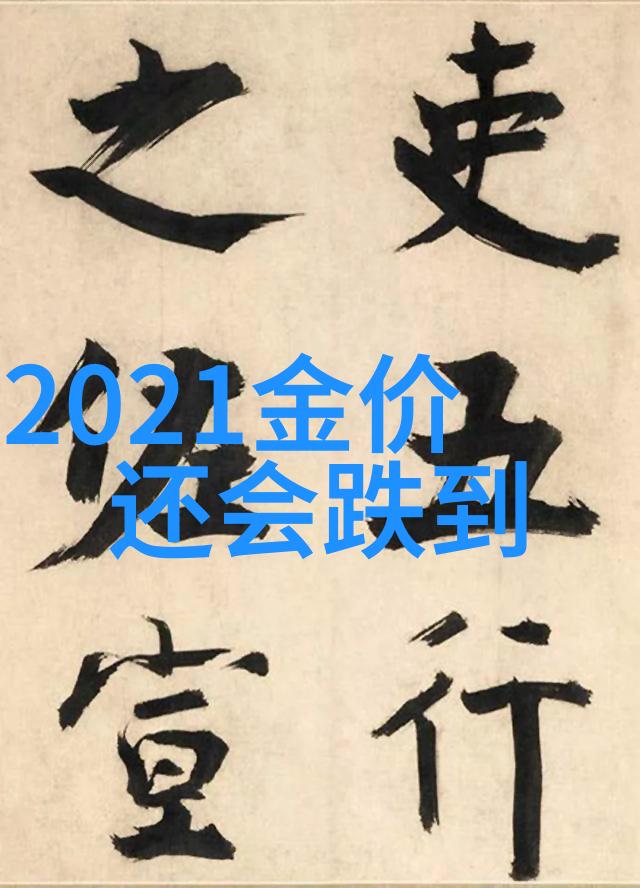 吏五行
之佐宣
2021金价
还会跌到